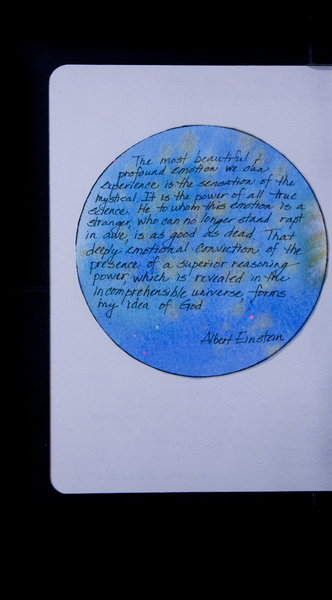 The most beautiful &
profound emotion we can
experience is the sensation of the
mystical. It is the power of all true
science. He to whom this emotion is a
stranger, who can no longer stand rapt
in awe, is as good as dead. That
deeply emotional conviction of the
presence of a superior reasoning
power which is revealed in the
incomprehensible universe, forms
my idea of God.
Albert Einstein